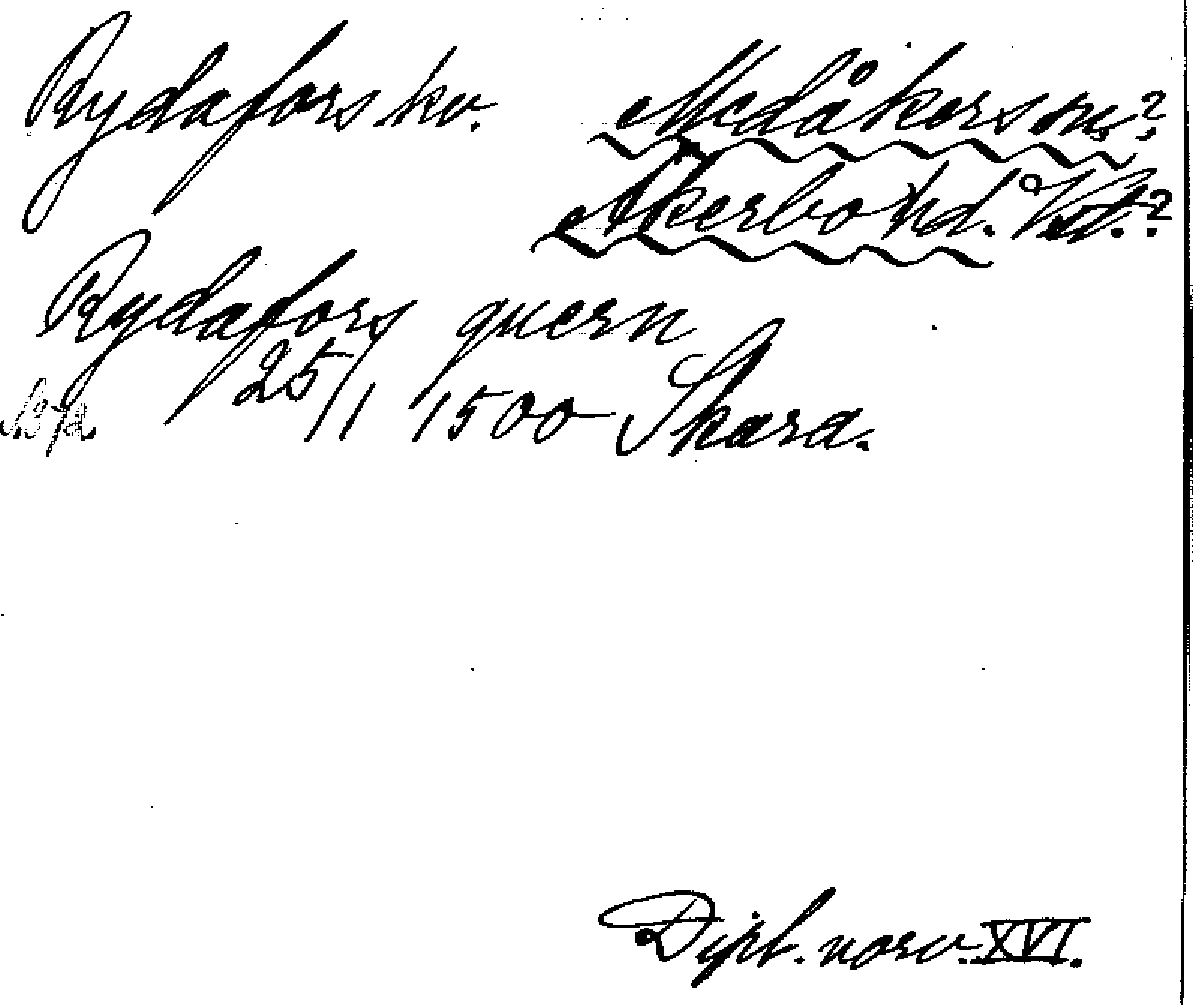 Rydafors kv. Medåkers sn.?
Åkerbo hd. Vstm.?
Rydafors quern
25/1 1500 Skara.
Dipl. norv. XVI.